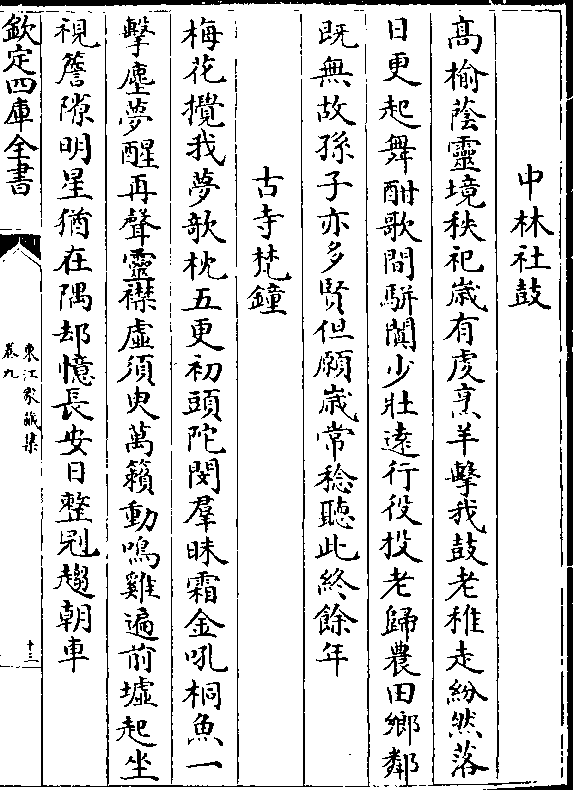 中林社鼓
髙榆蔭靈境秩祀歳有䖍烹羊擊我鼓老稚走紛然落
日更起舞酣歌間駢闐少壯逺行役投老歸農田鄉鄰
既無故孫子亦多賢但願歳常稔聽此終餘年
古寺梵鐘
梅花攪我夢欹枕五更初頭陀閔羣昧霜金吼桐魚一
擊塵夢醒再聲靈襟虛須臾萬籟動鳴雞遍前墟起坐
視簷隙明星猶在隅却憶長安日整冠趨朝車
欽定四庫全書
東江家藏集
卷九
十三